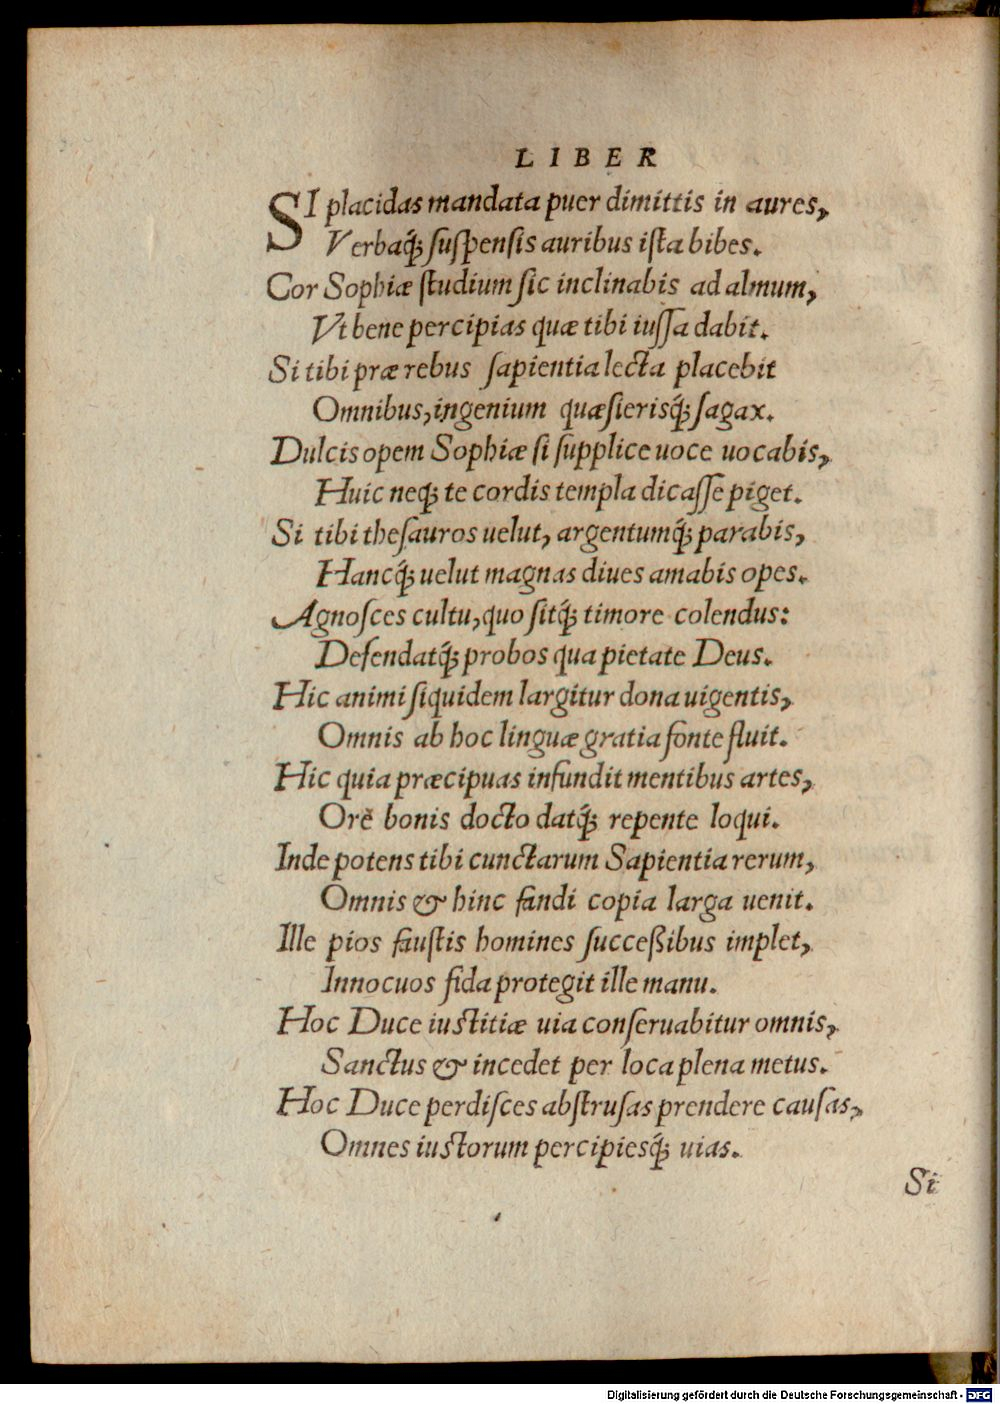 LIBER
SI placidas mandata puer dimittis in aures,
Verbaq́; ſuſpenſis auribus iſta bibes.
Cor Sophiæ ſtudium ſic inclinabis ad almum,
Vt bene percipias quæ tibi iuſſa dabit.
Si tibi præ rebus ſapientia lecta placebit
Omnibus, ingenium quæſierisq́; ſagax.
Dulcis opem Sophiæ ſi ſupplice uoce uocabis,
Huic neq; te cordis templa dicaſſe piget.
Si tibi theſauros uelut, argentumq́; parabis,
Hancq́; uelut magnas diues amabis opes.
Agnoſces cultu, quo ſitq́; timore colendus:
Defendatq́; probos qua pietate Deus.
Hic animi ſiquidem largitur dona uigentis,
Omnis ab hoc linguæ gratia fonte fluit.
Hic quia præcipuas infundit mentibus artes,
Ore bonis docto datq́; repente loqui.
Inde potens tibi cunctarum Sapientia rerum,
Omnis & hinc fandi copia larga uenit.
Ille pios fauſtis homines ſucceßibus implet,
Innocuos fida protegit ille manu.
Hoc Duce iuſtitiæ uia conſeruabitur omnis,
Sanctus & incedet per loca plena metus.
Hoc Duce perdiſces abſtruſas prendere cauſas,
Omnes iuſtorum percipiesq́; uias.
Si
Digitalisierung gefördert durch die Deutsche Forschungsgemeinschaft - DFG